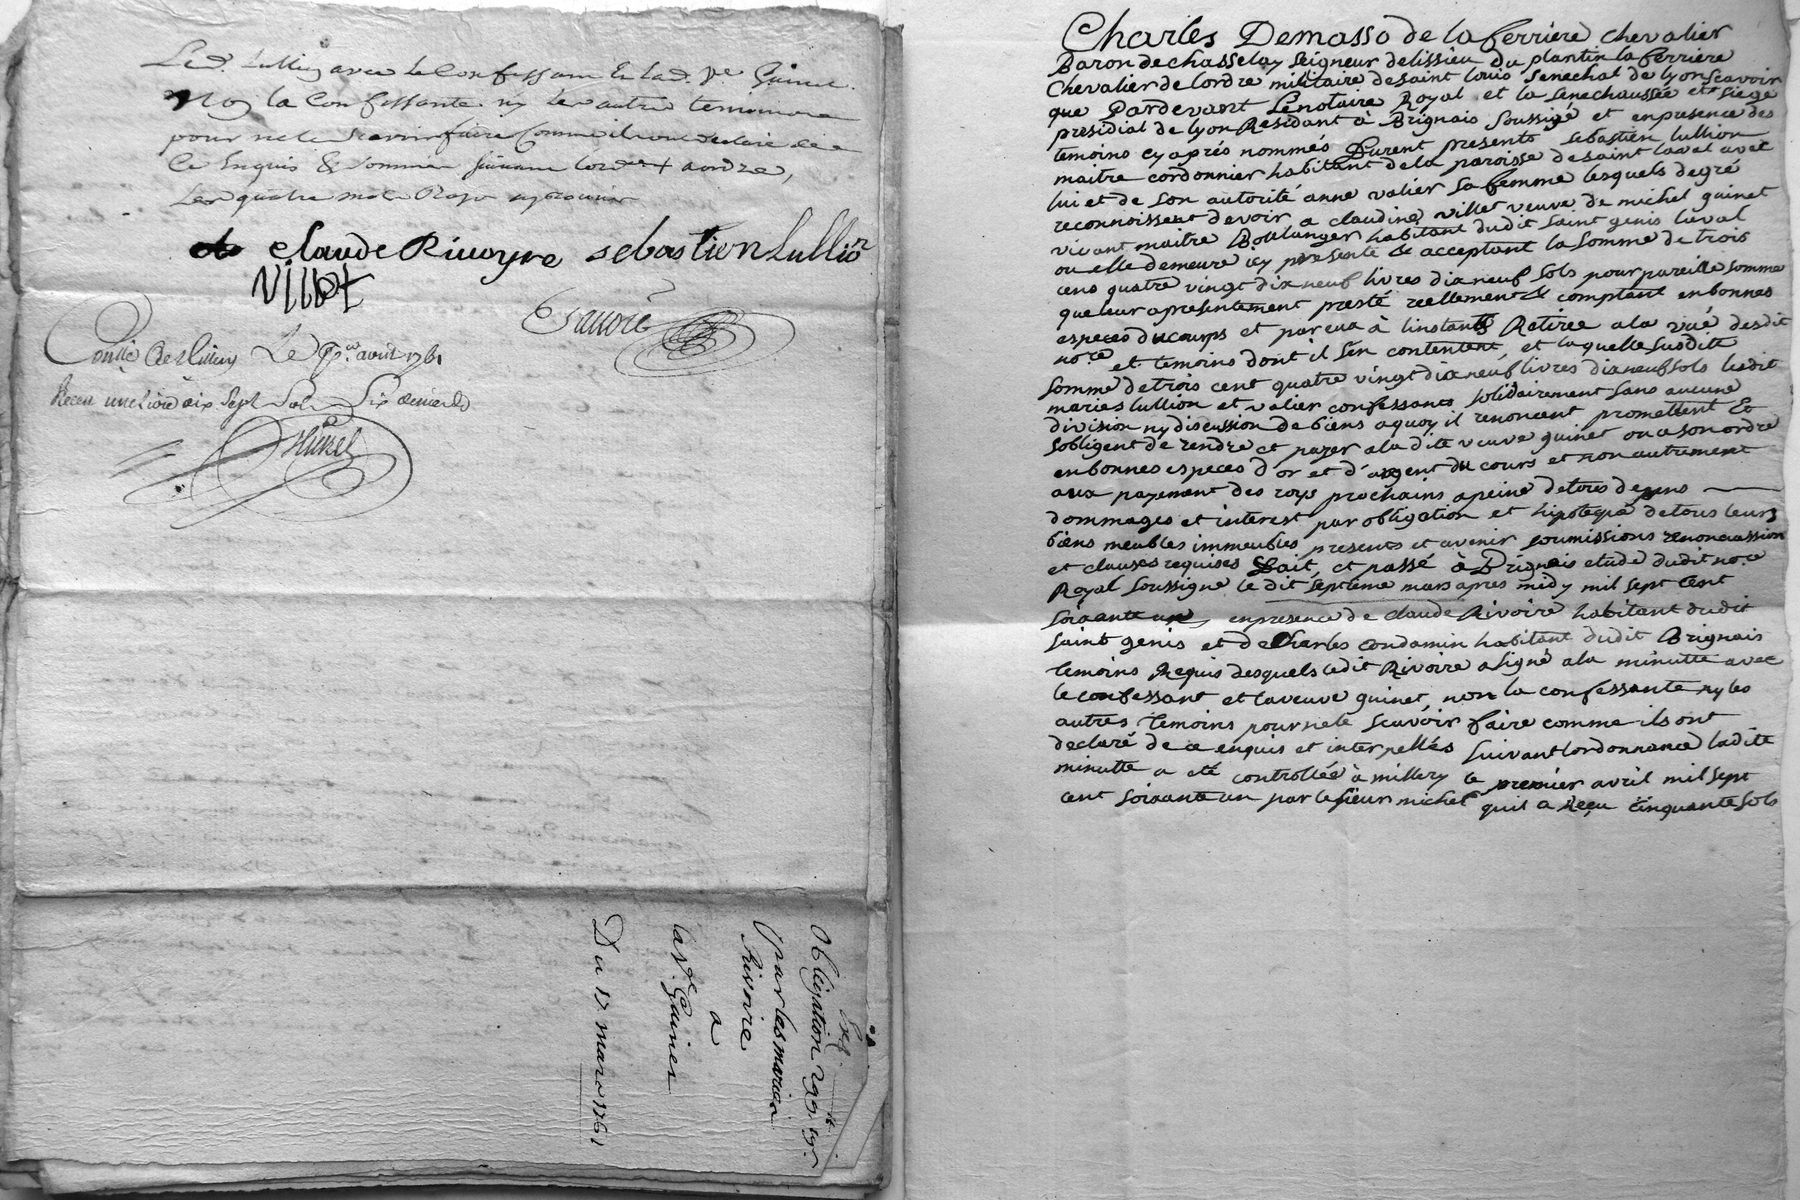 Led. Lullion avec le Confessant Et lad. ve Guinet
Non la Confessante ny les autre temoins
pour ne le scavoir faire Comme ils ont declaré de
Ce Enquis & Sommés suivant lord.ce
Les quatre mots
Claude Rivoyre sebastien Lullion
Villet
Con.llé A Millery Le p.er avril 1761
Receu une livre dix Sept Sols Six deniers
Michel
Obligation 399
par les mariés
Rivoire
a
la v.e Guinet
Du 17 mars 1761
Charles Demasso de la ferriere chevalier
Baron de chasselay seigneur de lissieu du plantin la ferriere
chevalier de lordre militaire de saint louis senechal de lyon scavoir
que Pardevant Lenotaire Royal et la senechaussée et siege
presidial de lyon Residant à Brignais soussigé et en presence des
temoins cy aprés nommés furent presents sebastien lullion
maitre cordonnier habitant de la paroisse de saint laval avec
lui et de son autorité anne valier sa femme lesquels de gré
reconnoissent devoir a claudine villet veuve de michel guinet
vivant maitre Boulanger habitant dudit saint genis laval
ou elle demeure icy presente & acceptant la somme de trois
cens quatre vingt dix neuf livres dix neuf sols pour pareille somme
que leur a presentement presté reellement & comptant en bonnes
especes du cours et par eux à linstant Retirée a la vuë desdit
no.re et temoins dont il s'en contentent, et laquelle susdite
somme de trois cent quatre vingt dix neuf livres dix neuf sols lesdit
mariés lullion et valier confessants solidairement sans aucune
division ny discussion de biens a quoy il renoncent promettent Et
sobligent de rendre et payer a la dite veuve guinet ou a son ordre
en bonnes especes d'or et d'argent du cours et non autrement
aux payement des roys prochains a peine de tous depens
dommages et interest par obligation et hipoteque de tous leurs
biens meubles immeubles presents et avenir soumissions renonciassion
et clauses requises fait, et passé à Brignais etude dudit no.re
Royal soussigne le dit septieme mars apres midy mil sept Cent
soixante un, en presence de claude Rivoire habitant dudit
saint genis et de Charles condamin habitant dudit Brignais
temoins Requis desquels ledit Rivoire a signé a la minutte avec
le confessant et la veuve guinet, non la confessante ny les
autres temoins pour ne le scavoir faire comme ils ont
declaré de ce enquis et interpellés suivant lordonnance ladite
minutte a eté controllée à millery le premier avril mil sept
cent soixante un par le sieur michel quil a Reçu cinquante sols